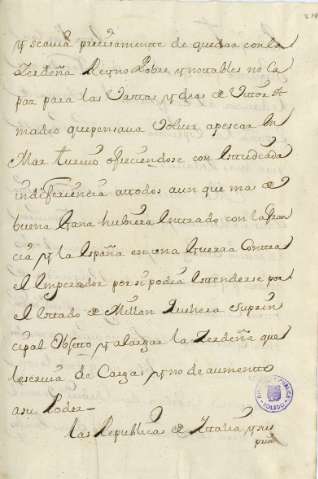 y seavia precisamente de quedar con la
Zerdeña Reyno Pobre y nottables no Ca
paz para las Vastas ydeas de Vittorio A
madeo que pensava volver apescar En
Mar turvio ofreciendose con Intrincada
indifferencia attodos aun que mas de
buena Gana hubiera Entrado con la Fran
cia y la España en una Guerra Contra
el Imperador por si podia Estenderse por
el Estado de Millan que hera su prin
cipal Obgetto y alargar la Zerdeña que
le servia de Carga y no de aumentto
a su Poder
las Republica de Ittalia y sus
prin